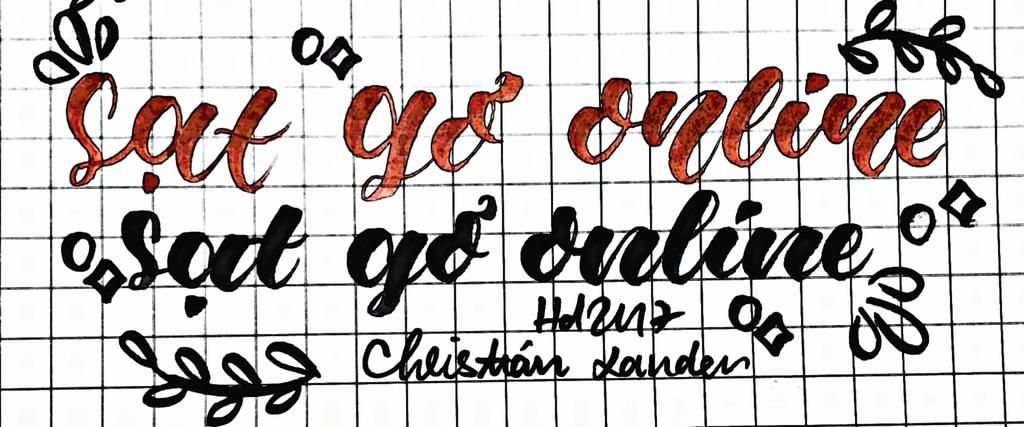 Sạt gơ online
Sạt gơ online
Christián Landen